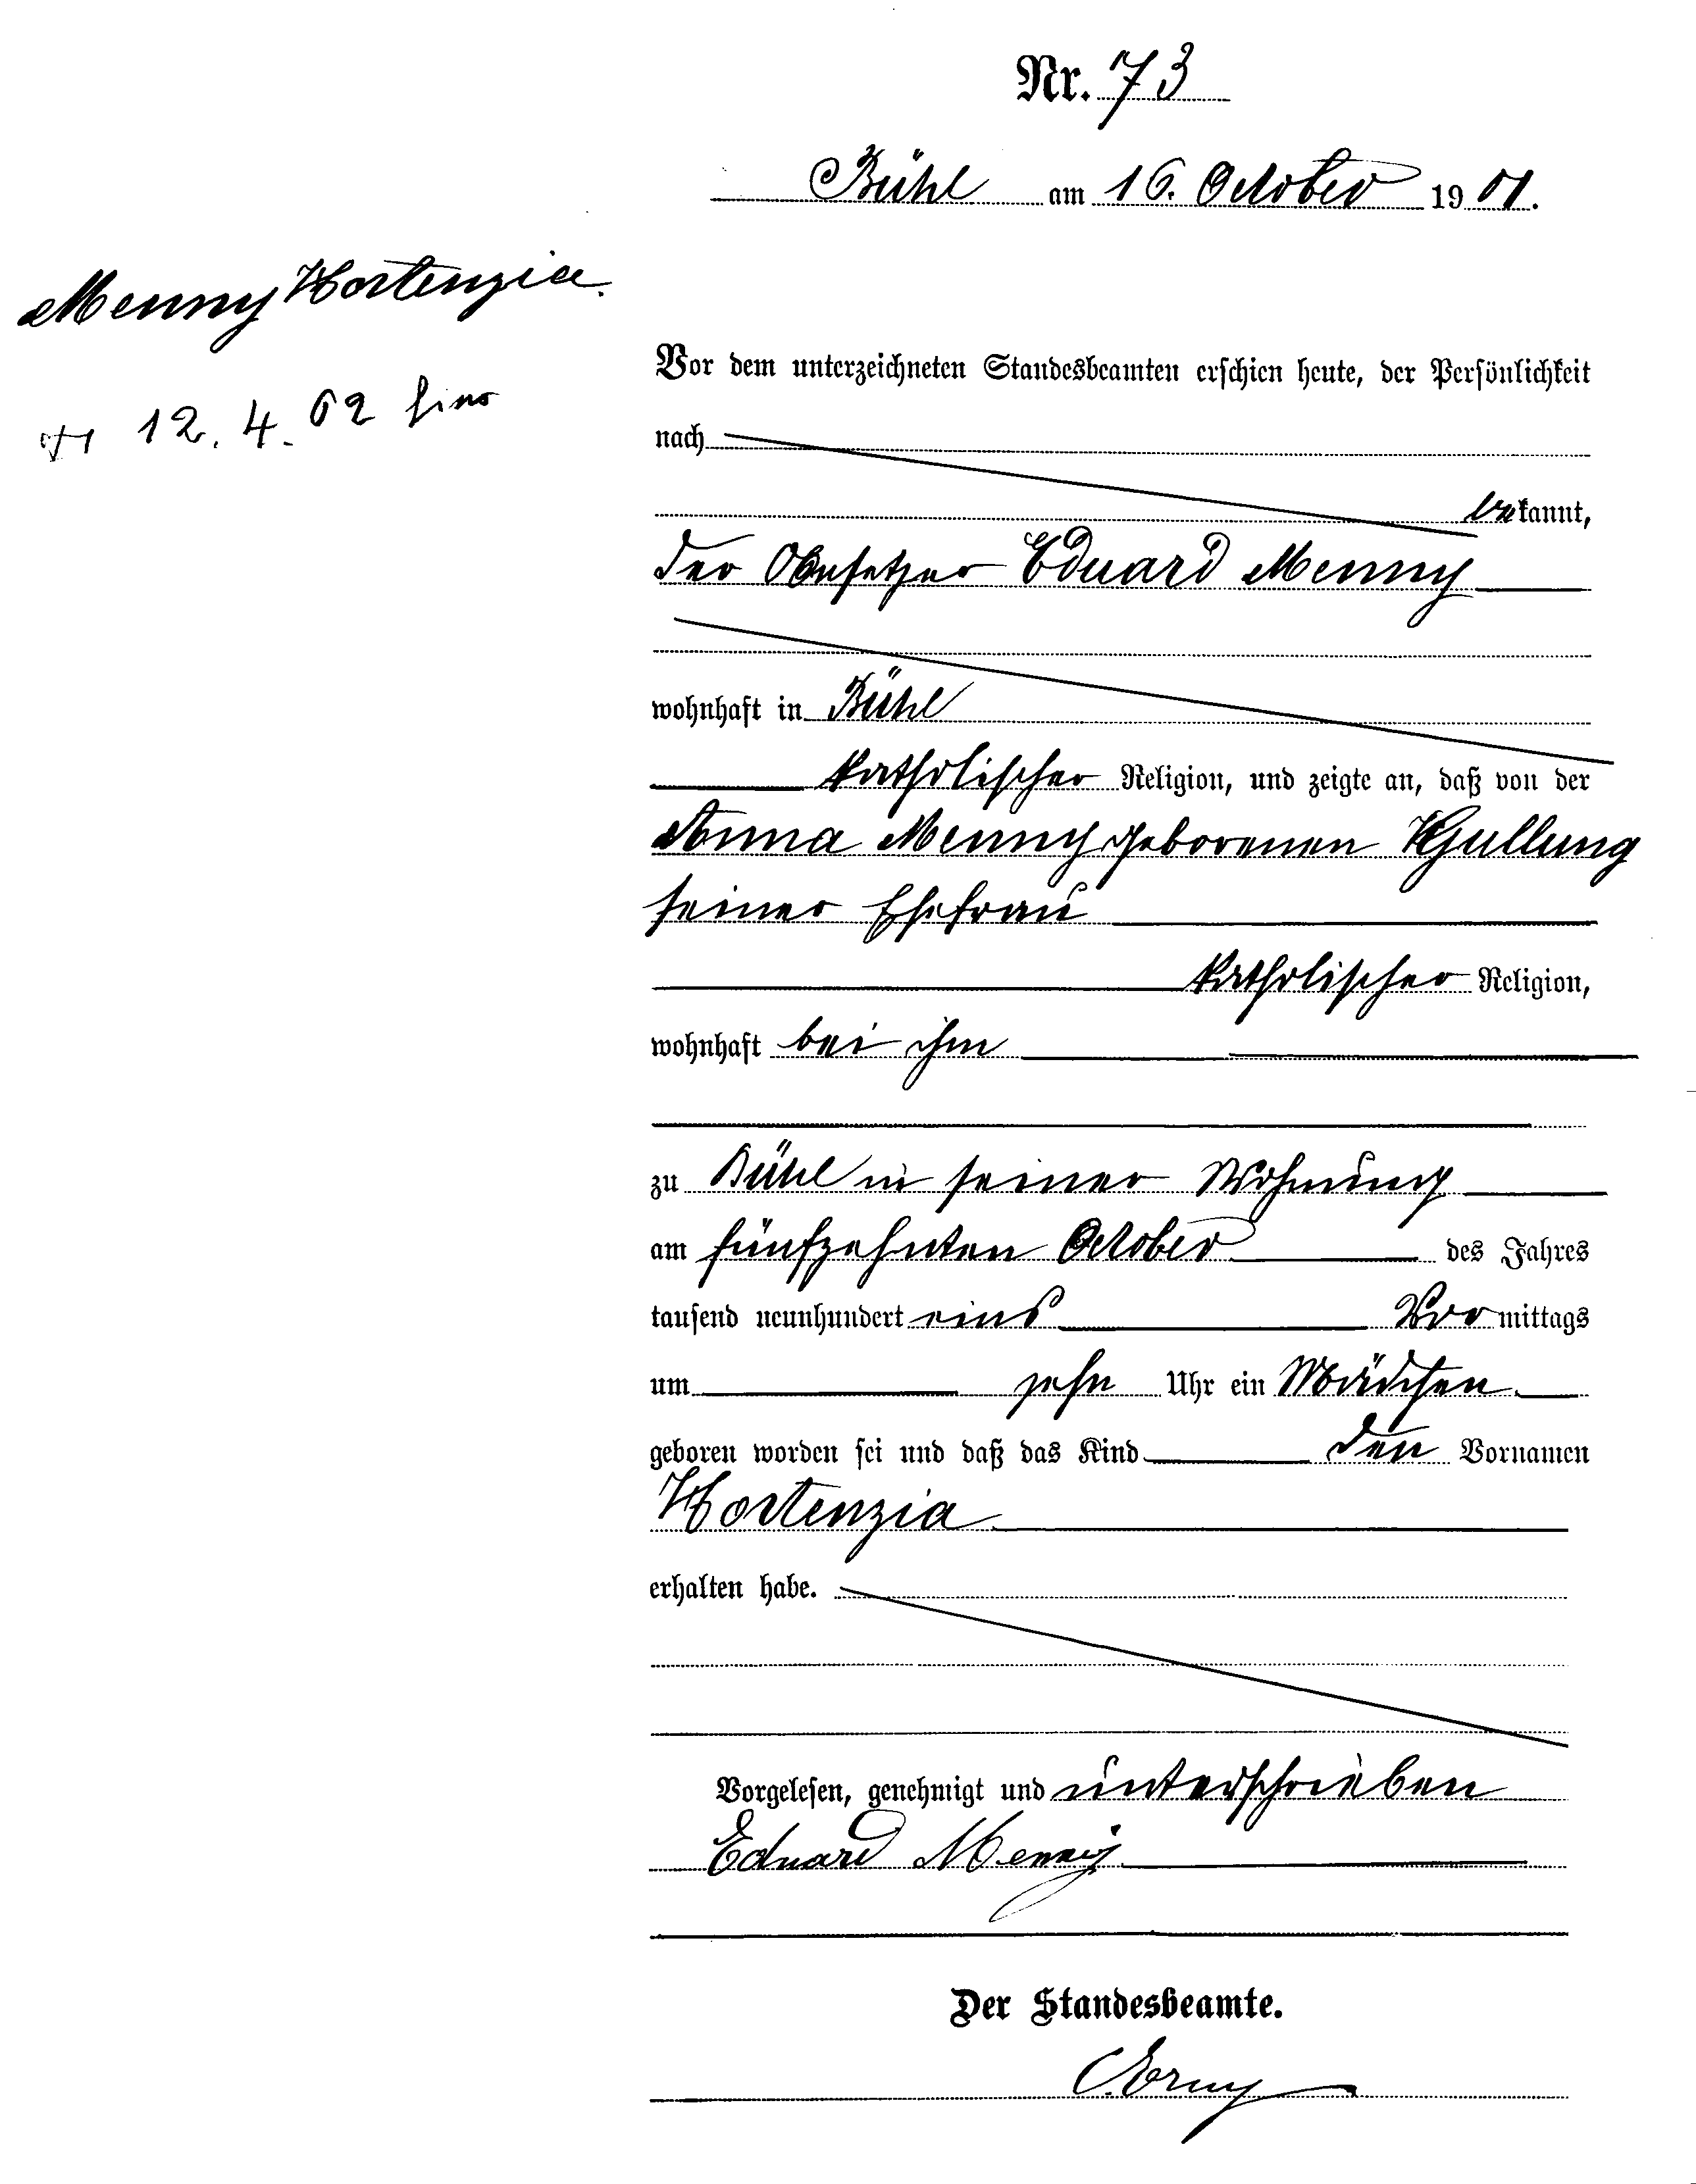 Nr. 73
Bühl am 16. October 1901.
Menny Hortenzia.
12. 4. 02
Vor dem unterzeichneten Standesbeamten erschien heute, der Persönlichkeit
nach
bekannt,
der Eduard Menny
wohnhaft in Bühl
katholischer Religion, und zeigte an, daß von der
Anna Menny geborenen Gullung
seiner Ehefrau
katholischer Religion,
wohnhaft bei ihm
zu Bühl in seiner Wohnung
am fünfzehnten October des Jahres
tausend neunhundert eins Vormittags
um zehn Uhr ein Mädchen
geboren worden sei und daß das Kind den Vornamen
Hortenzia
erhalten habe.
Vorgelesen, genehmigt und unterschrieben
Eduard Menny
Der Standesbeamte.